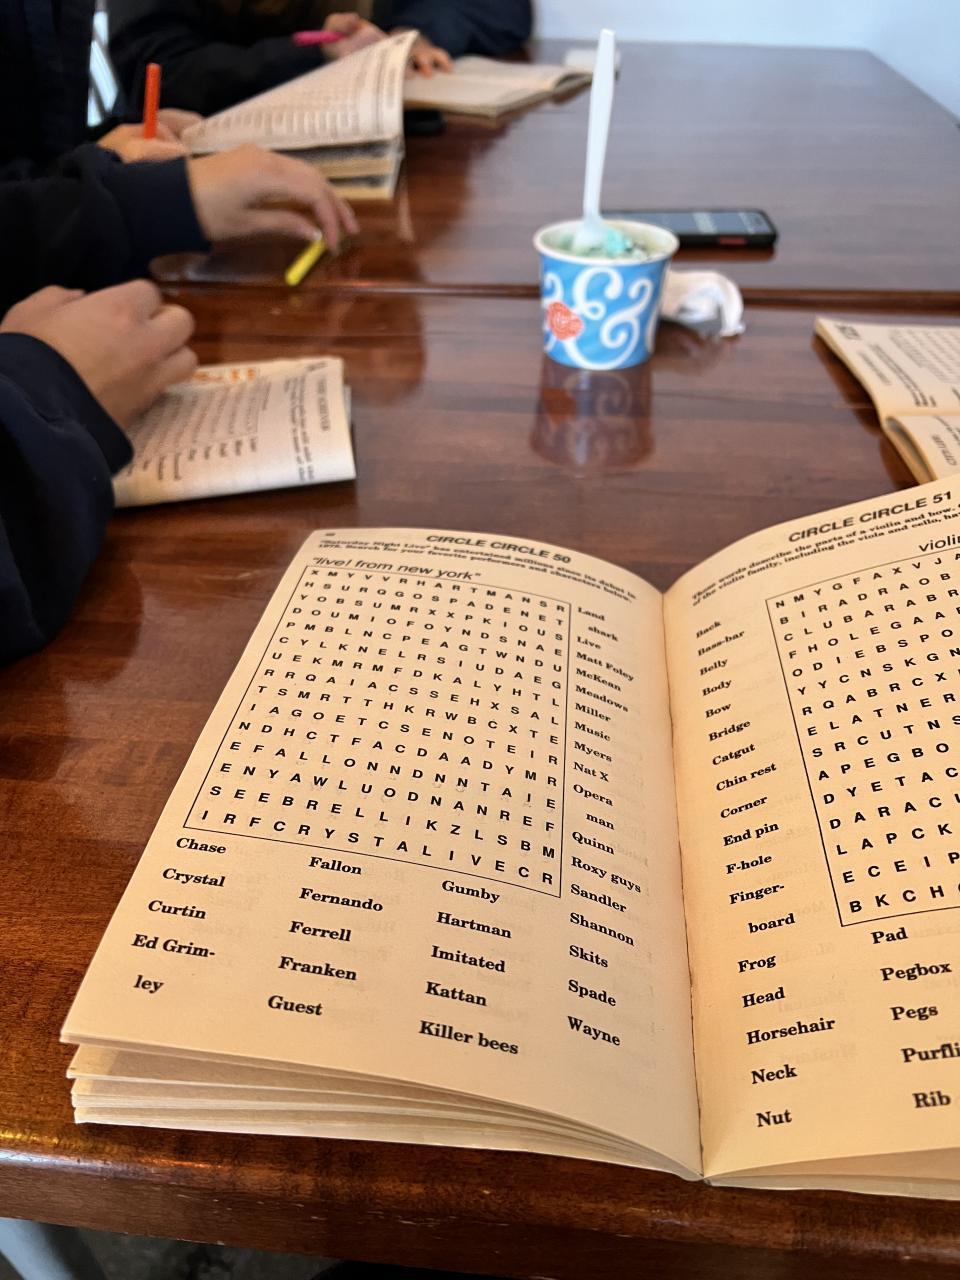 CIRCLE CIRCLE 50
"Saturday Night Live" has entertained millions since its debut in
1975. Search for your favorite performers and characters below.
"live! from new york"
K M Y V V R H A R T M A N S R
H S U R Q G O S P A D E N E T
Y O B S U M R X X P K I O U S
D O U M I O F O Y N D S N A E
P M B L N C P E A G T W N D U
C Y L K N E L R S I U D A E G
U E K M R M F D K A L Y H T L
R R Q A I A C S S E H X S A L
T S M R T T H K R W B C X T E
I A G O E T C S E N O T E I R
N D H C T F A C D A A D Y M R
E F A L L O N N D N N T A I E
E N Y A W L U O D N A N R E F
S E E B R E L L I K Z L S B M
I R F C R Y S T A L I V E C R
Chase
Crystal
Curtin
Ed Grim-
ley
Fallon
Fernando
Ferrell
Franken
Guest
Gumby
Hartman
Imitated
Kattan
Killer bees
Land
shark
Live
Matt Foley
McKean
Meadows
Miller
Music
Myers
Nat X
Opera
man
Quinn
Roxy guys
Sandler
Shannon
Skits
Spade
Wayne
CIRCLE CIRCLE 51
These words describe the parts of a violin and bow.
of the violin family, including the viola and cello, ha
violin
N M Y G F A X V J A
B I R A D R A O B
C L U B A R A B R
F H O L E G A A
O D I E B S P O
Y Y C N S K G N
R Q A B R C X
E L A T N E R
S R C U T N S
A P E G B O
D Y E T A C
D A R A C
L A P C K
E C E I P
B K C H
Back
Bass-bar
Belly
Body
Bow
Bridge
Catgut
Chin rest
Corner
End pin
F-hole
Finger-
board
Frog
Head
Horsehair
Neck
Nut
Pad
Pegbox
Pegs
Purfli
Rib